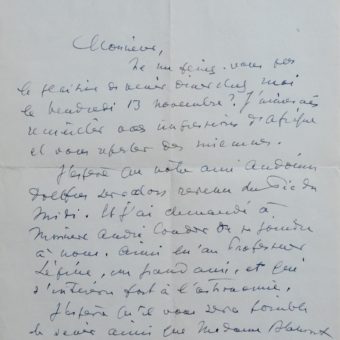 Monsieur,
Me feriez-vous
le plaisir de venir diner chez moi
le vendredi 13 novembre ? J'aimerais
vos impressions d'Afrique
et vous parler des miennes.
J'espère que votre ami Audouin
Dollfus sera alors revenu du Pic du
Midi. Et j'ai demandé à
Monsieur André Couder de se joindre
à nous. Ainsi qu'au Professeur
Lépine, un grand ami, et qui
s'intéresse fort à l'astronomie.
J'espère qu'il vous sera possible
de venir ainsi que Madame